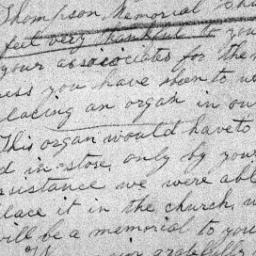 Thompson Memorial Chu
feel very thankful to you
your associates for the
ress you have seen to us
lacing an organ in our
This organ would have to
d in store, only by your
sistance we were abl
lace it in the church, w
will be a memorial to you
your gratefully